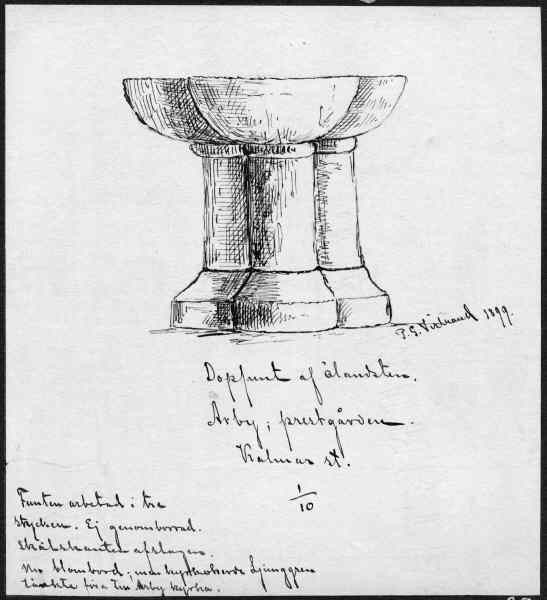 P. G. Vistrand 1899.
Dopfunt af ölandsten.
Arby, prestgården.
Kalmar st.
1/10
Funten arbetad i tre
stycken. Ej genomborrad.
skålskanten afslagen.
Nu blombord; men kyrkoherde Ljunggren
till Arby kyrka.